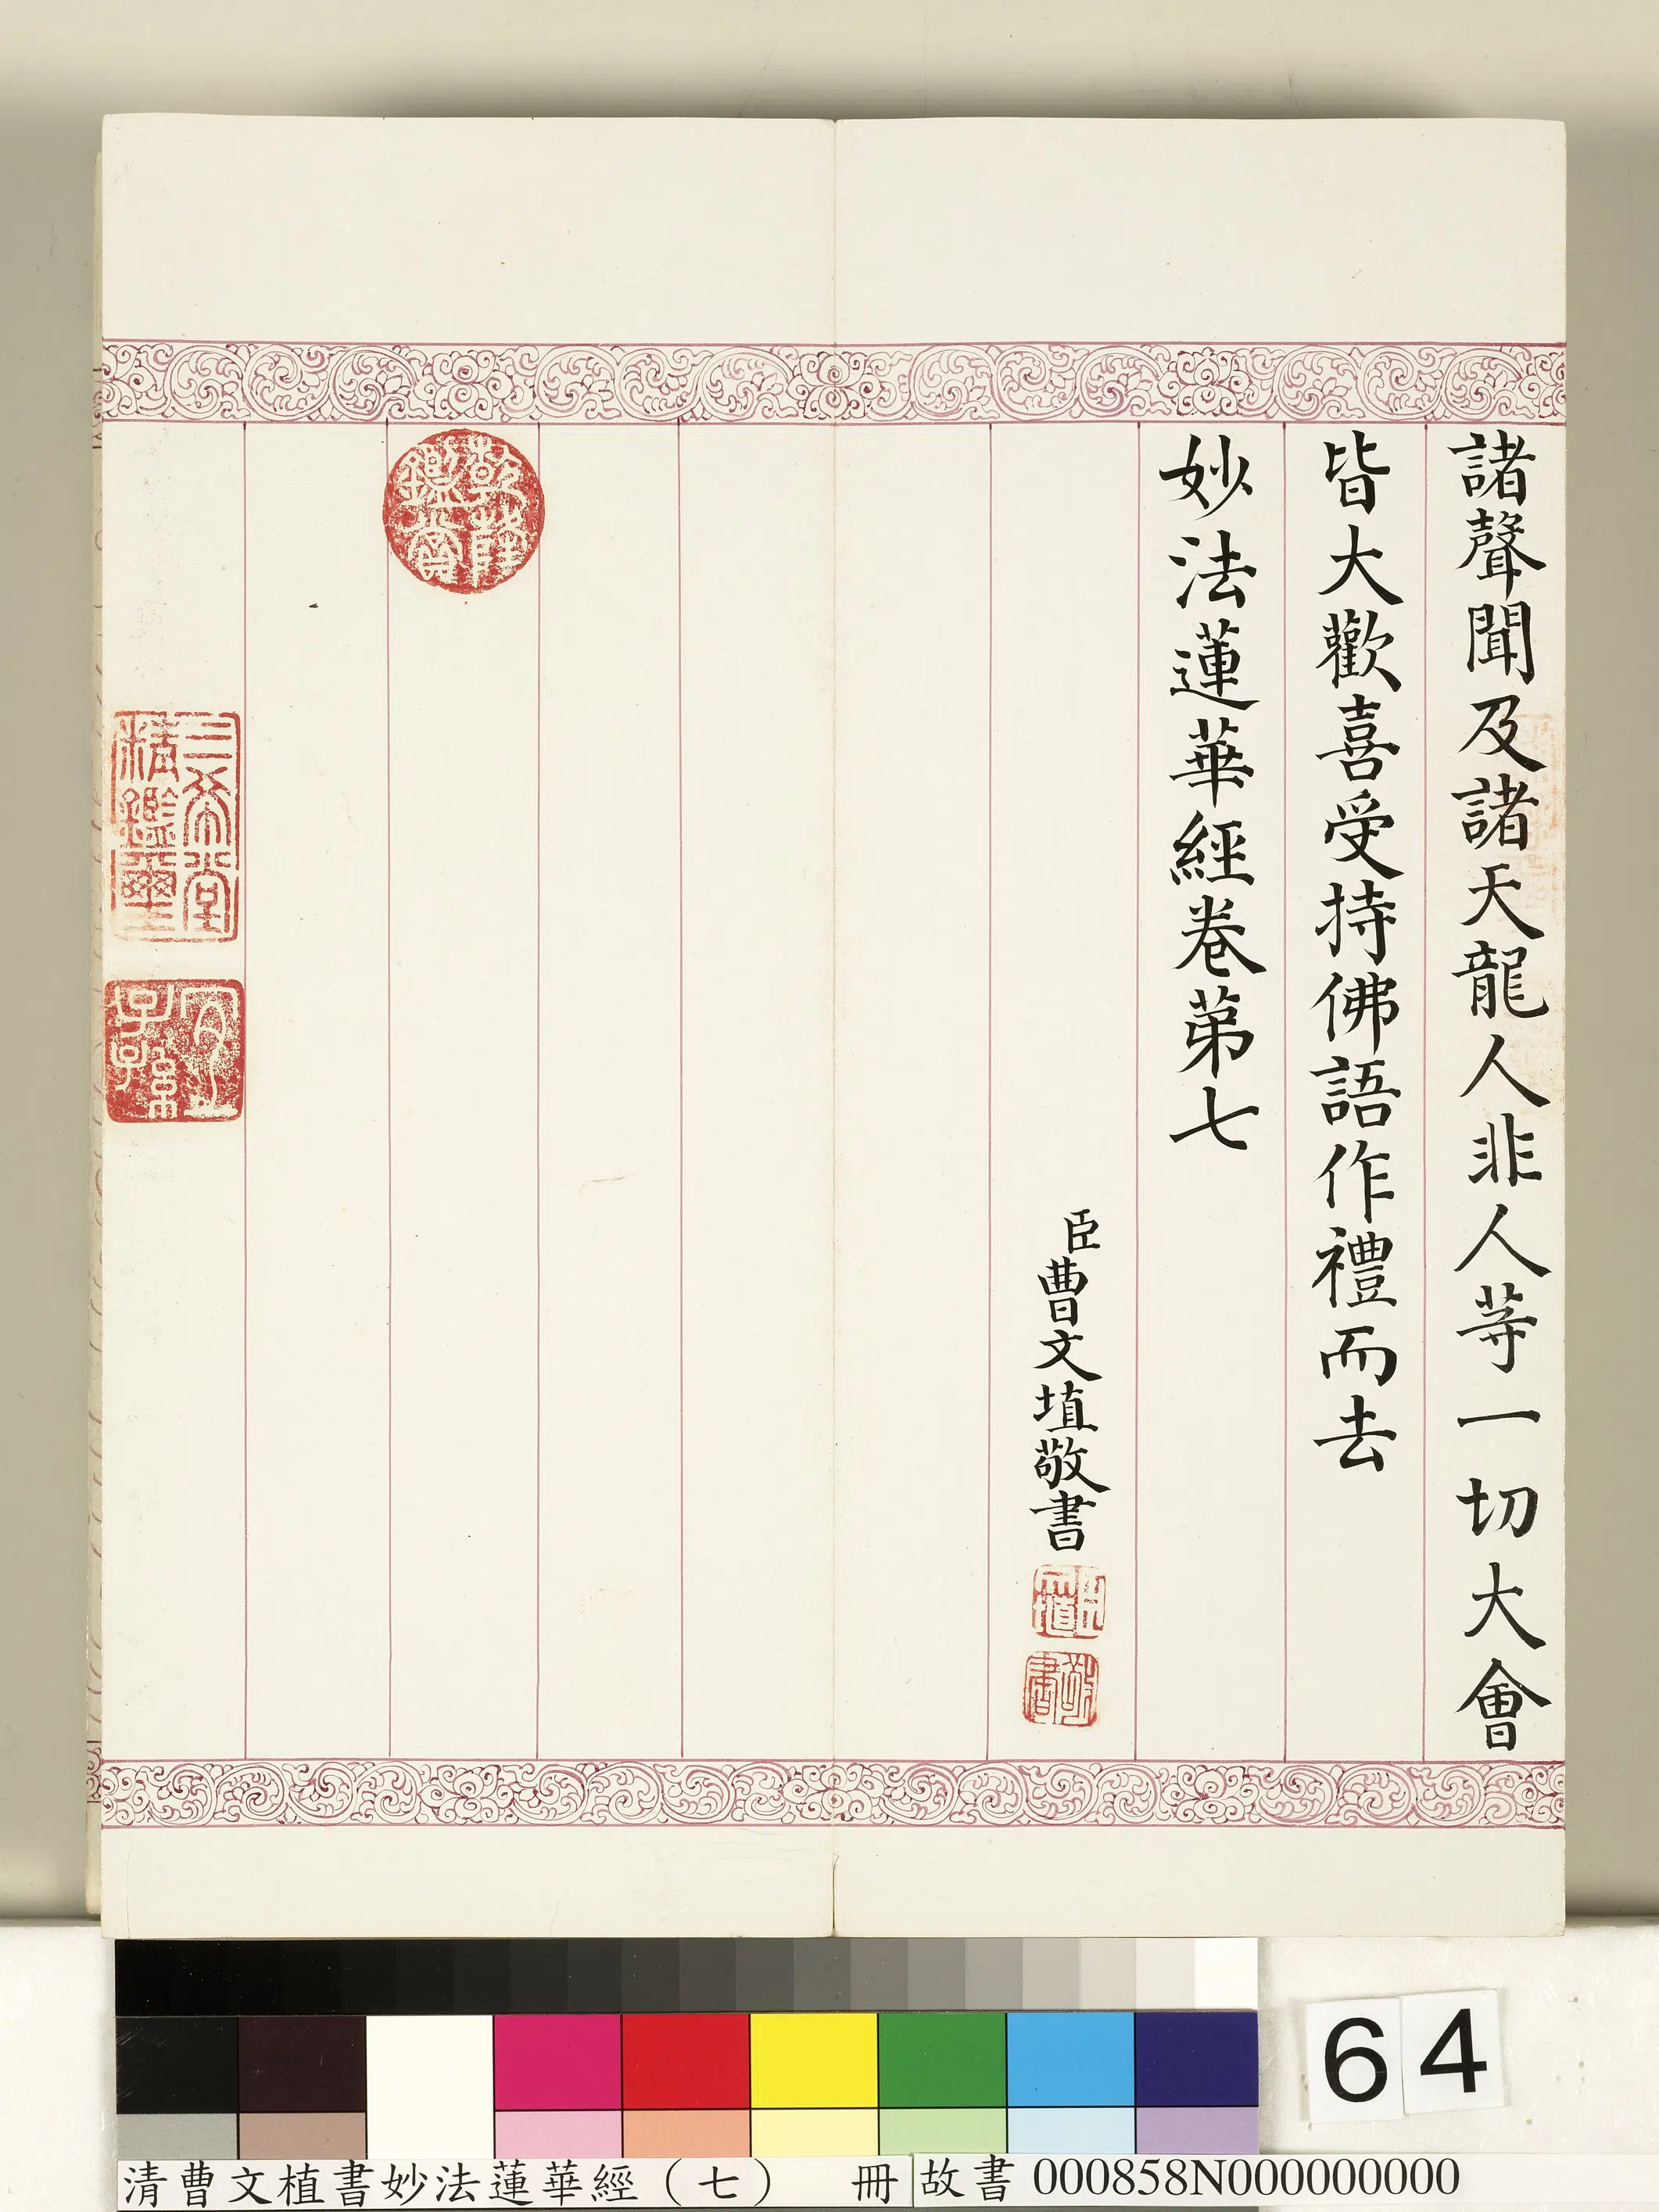 諸聲聞及諸天龍人非人等一切大會
皆大歡喜受持佛語作禮而去
妙法蓮華經卷第七
臣曹文埴敬書
臣文埴
敬書
乾隆鑑賞
三希堂精鑑璽
宜子孫
64
清曹文植書妙法蓮華經（七） 冊 故書 000858N000000000